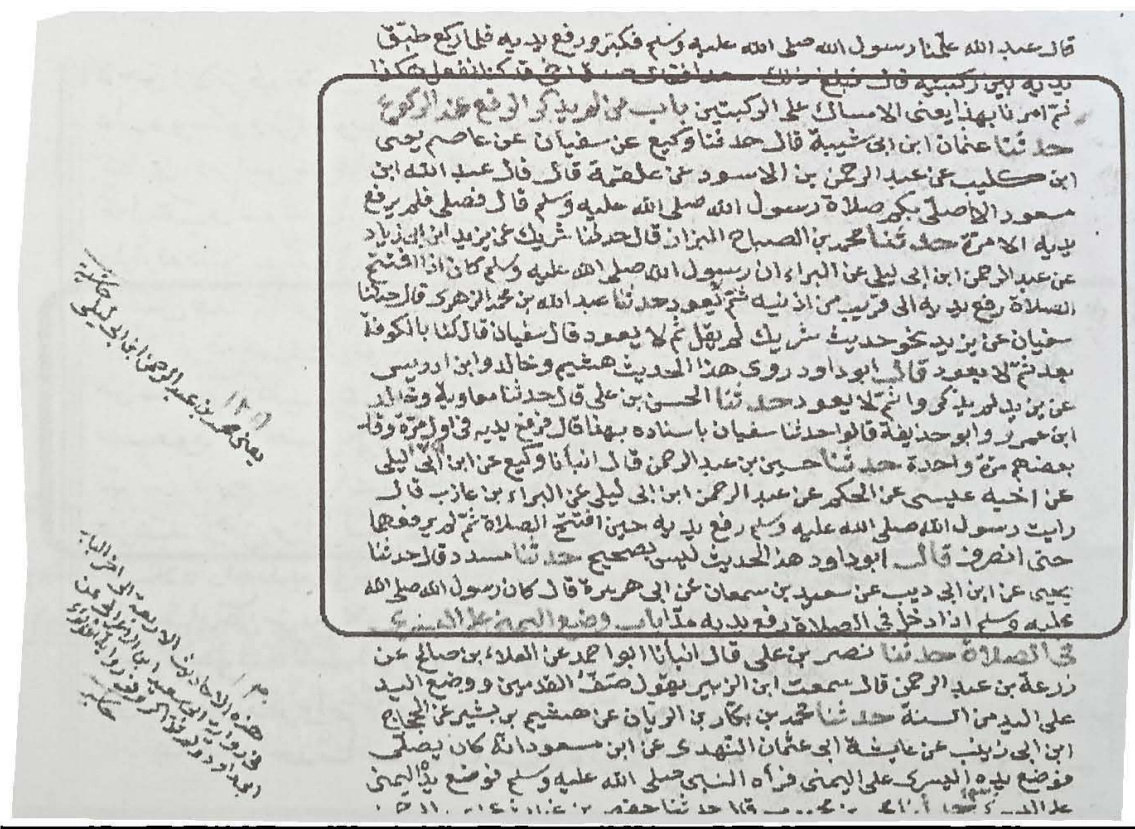 قال عبد الله علمنا رسول الله صلى الله عليه وسلم فكبر ورفع يديه فلما ركع طبق
يديه بين ركبتيه قال فبلغ ذلك
ثم امرنا بهذا يعنى الامساك على الركبتين باب من لم يذكر الرفع عند الركوع
حدثنا عثمان ابن ابى شيبة قال حدثنا وكيع عن سفيان عن عاصم يعنى
ابن كليب عن عبد الرحمن بن الاسود عن علقمة قال قال عبد الله ابن
مسعود الا اصلى بكم صلاة رسول الله صلى الله عليه وسلم قال فصلى فلم يرفع
يديه الا مرة حدثنا محمد بن الصباح البزاز قال حدثنا شريك عن يزيد ابن ابى زياد
عن عبد الرحمن ابن ابى ليلى عن البراء ان رسول الله صلى الله عليه وسلم كان اذا افتتح
الصلاة رفع يديه الى قريب من اذنيه ثم لا يعود حدثنا عبد الله بن محمد الزهرى قال حدثنا
سفيان عن يزيد نحو حديث شريك لم يقل ثم لا يعود قال سفيان قال لنا بالكوفة
بعد ثم لا يعود قال ابو داود روى هذا الحديث هشيم وخالد وابن ادريس
عن يزيد لم يذكروا ثم لا يعود حدثنا الحسن بن على قال حدثنا معاوية وخالد
ابن عمرو وابو حذيفة قالوا حدثنا سفيان باسناده بهذا قال فرفع يديه فى اول مرة وقال
بعضهم مرة واحدة حدثنا حسين بن عبد الرحمن قال انبأنا وكيع عن ابن ابى ليلى
عن اخيه عيسى عن الحكم عن عبد الرحمن ابن ابى ليلى عن البراء بن عازب قال
رايت رسول الله صلى الله عليه وسلم رفع يديه حين افتتح الصلاة ثم لم يرفعهما
حتى انصرف قال ابو داود هذا الحديث ليس بصحيح حدثنا مسدد قال حدثنا
يحيى عن ابن ابى ذيب عن سعيد بن سمعان عن ابى هريرة قال كان رسول الله صلى الله
عليه وسلم اذا دخل فى الصلاة رفع يديه مدا باب وضع اليمنى على اليسرى
فى الصلاة حدثنا نصر بن على قال انبأنا ابو احمد عن العلاء بن صالح عن
زرعة بن عبد الرحمن قال سمعت ابن الزبير يقول صف القدمين ووضع اليد
على اليد من السنة حدثنا محمد بن بكار بن الريان عن هشيم بن بشير عن الحجاج
ابن ابى زينب عن ابى عثمان النهدى عن ابن مسعود انه كان يصلى
فوضع يده اليسرى على اليمنى فرأه النبى صلى الله عليه وسلم فوضع يده اليمنى
يعنى محمد بن عبد الرحمن ابن ابى ليلى
هذه الاحاديث الاربعة الى اخر الباب
فى رواية ابى سعيد ابن الاعرابى عن
ابى داود